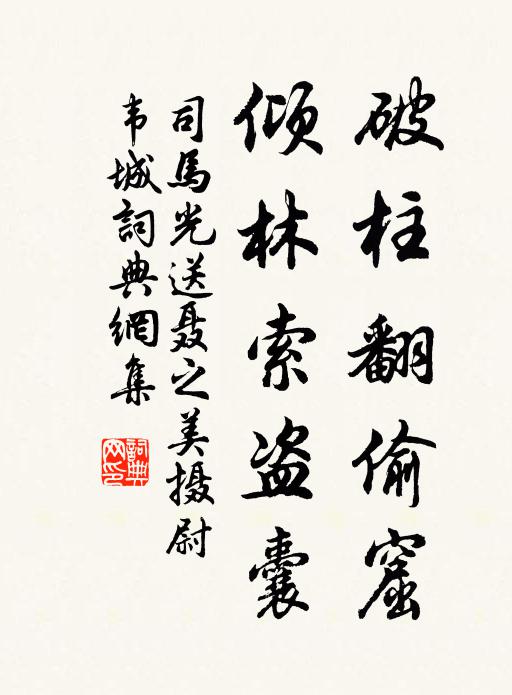 破柱翻偷窟
倾林索盗囊
司馬光送聂之美摄尉
韦城詞典網集
詞典网印